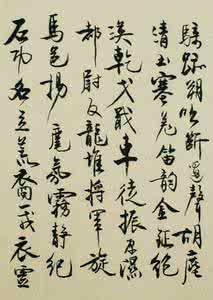 騎跡朔吹斷邊聲胡塵
清玉塞羌笛韵金鉦絕
漠乾戈戢車徒振原隰
都尉反龍堆將軍旋
馬邑揚麾氛霧靜紀
石功名立荒裔一戎衣靈